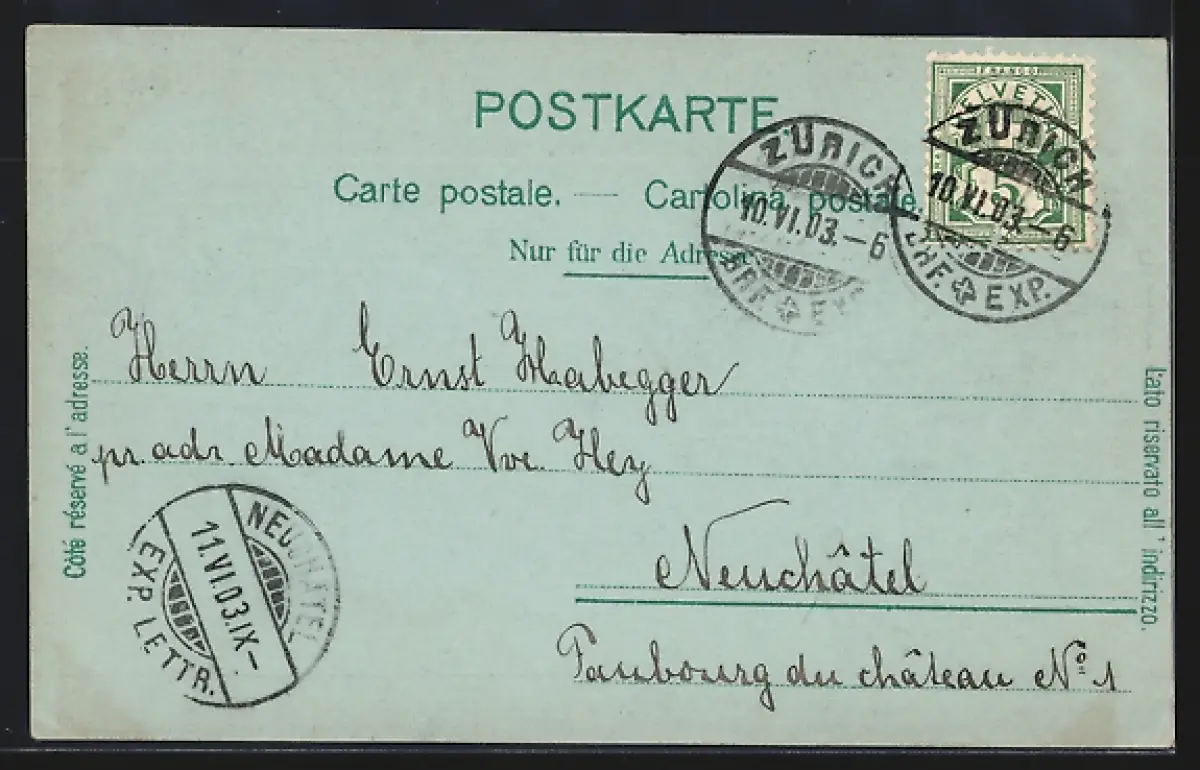 POSTKARTE
Carte postale. — Cartolina postale.
Nur für die Adresse
FRANCO
HELVETIA
5
ZÜRICH
10.VI.03.–6
BRF. EXP.
ZÜRICH
10.VI.03.–6
BRF. EXP.
Herrn Ernst Habegger
pr. adr. Madame Vve. Hey
Neuchâtel
Faubourg du château No. 1
NEUCHATEL
11.VI.03.IX–
EXP. LETTR.
Côté réservé a l'adresse.
Lato riservato all' indirizzo.